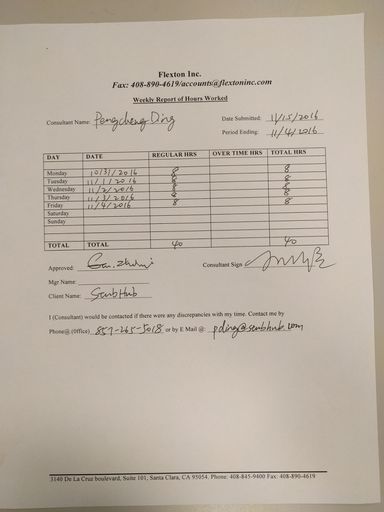 Flexton Inc.
Fax: 408-890-4619/accounts@flextoninc.com
Weekly Report of Hours Worked
Consultant Name: Pengcheng Ding Date Submitted: 11/15/2016
Period Ending: 11/4/2016
DAY DATE REGULAR HRS OVER TIME HRS TOTAL HRS
Monday 10/31/2016 8 8
Tuesday 11/1/2016 8 8
Wednesday 11/2/2016 8 8
Thursday 11/3/2016 8 8
Friday 11/4/2016 8 8
Saturday
Sunday
TOTAL TOTAL 40 40
Approved: Consultant Sign
Mgr Name:
Client Name: ScrubHub
I (Consultant) would be contacted if there were any discrepancies with my time. Contact me by
Phone@ (Office) 857-265-5018 or by E Mail @:
3140 De La Cruz boulevard, Suite 101, Santa Clara, CA 95054. Phone: 408-845-9400 Fax: 408-890-4619